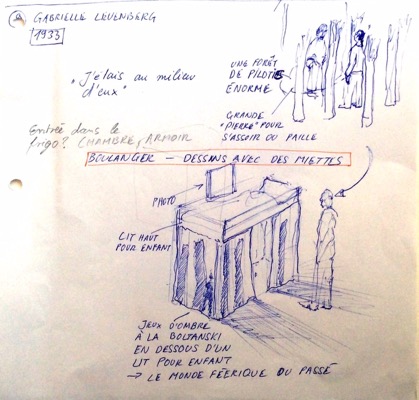 GABRIELLE LEVENBERG
1933
"J'étais au milieu
d'eux"
UNE FORÊT
DE PILOTIS
ÉNORME
GRANDE
"PIERRE" POUR
S'ASSOIR OU PAILLE
Entrée dans le
frigo? CHAMBRE, ARMOIR
BOULANGER – DESSINS AVEC DES MIETTES
PHOTO
LIT HAUT
POUR ENFANT
JEUX D'OMBRE
À LA BOLTANSKI
EN DESSOUS D'UN
LIT POUR ENFANT
→ LE MONDE FÉERIQUE DU PASSÉ